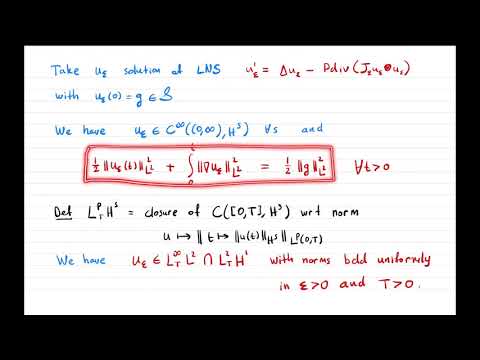 Take uε solution of LNS u'ε = Δuε − P div (Jε uε ⊗ uε)
with uε(0) = g ∈ S
We have uε ∈ C^∞((0,∞), H^s) ∀s and
½ ‖uε(t)‖²_{L²} + ∫₀ᵗ ‖∇uε‖²_{L²} = ½ ‖g‖²_{L²} ∀t>0
Def L^p_T H^s = closure of C([0,T], H^s) wrt norm
u ↦ ‖ t ↦ ‖u(t)‖_{H^s} ‖_{L^p(0,T)}
We have uε ∈ L^∞_T L² ∩ L²_T H¹ with norms bdd uniformly
in ε>0 and T>0.